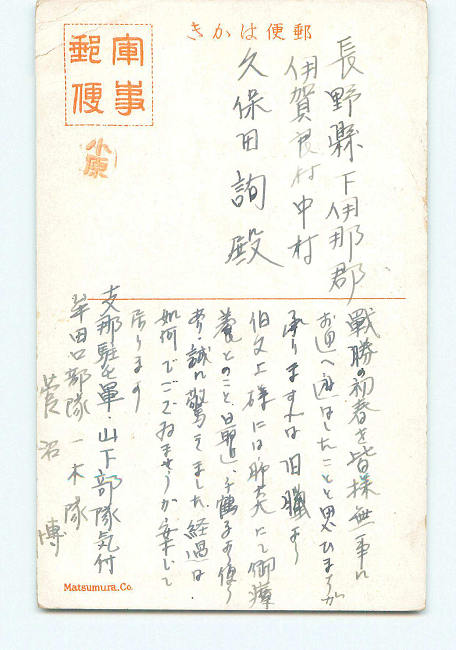 郵便はかき
軍事
郵便
小原
長野縣下伊那郡
伊賀良村中村
久保田詢殿
戰勝の初春を皆様無事に
お迎へ遊ばしたことと思ひますが
承りますれば旧臘より
伯父上様には肺炎にて御療
養とのこと
誠に驚きました 経過は
如何でございませうか案じて
居ります
支那駐屯軍・山下部隊気付
牟田口部隊一木隊
菅沼博
Matsumura.Co.